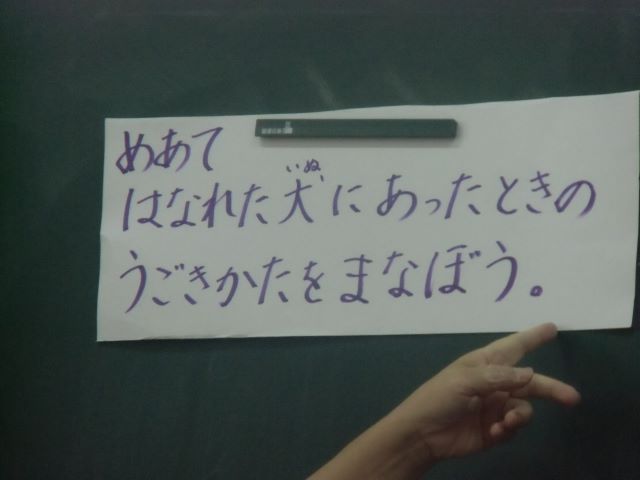 めあて
はなれた犬にあったときの
いぬ
うごきかたをまなぼう。